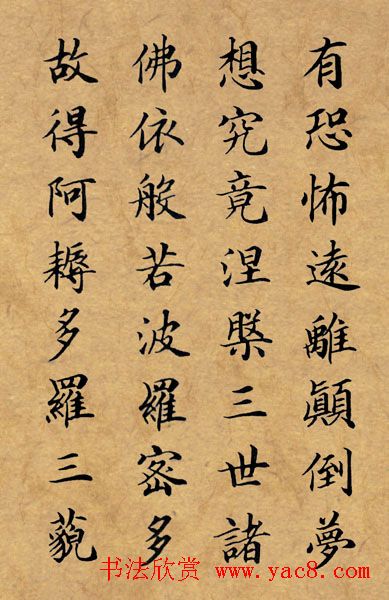 有恐怖遠離顛倒夢
想究竟涅槃三世諸
佛依般若波羅密多
故得阿耨多羅三藐
书法欣赏 www.yac8.com